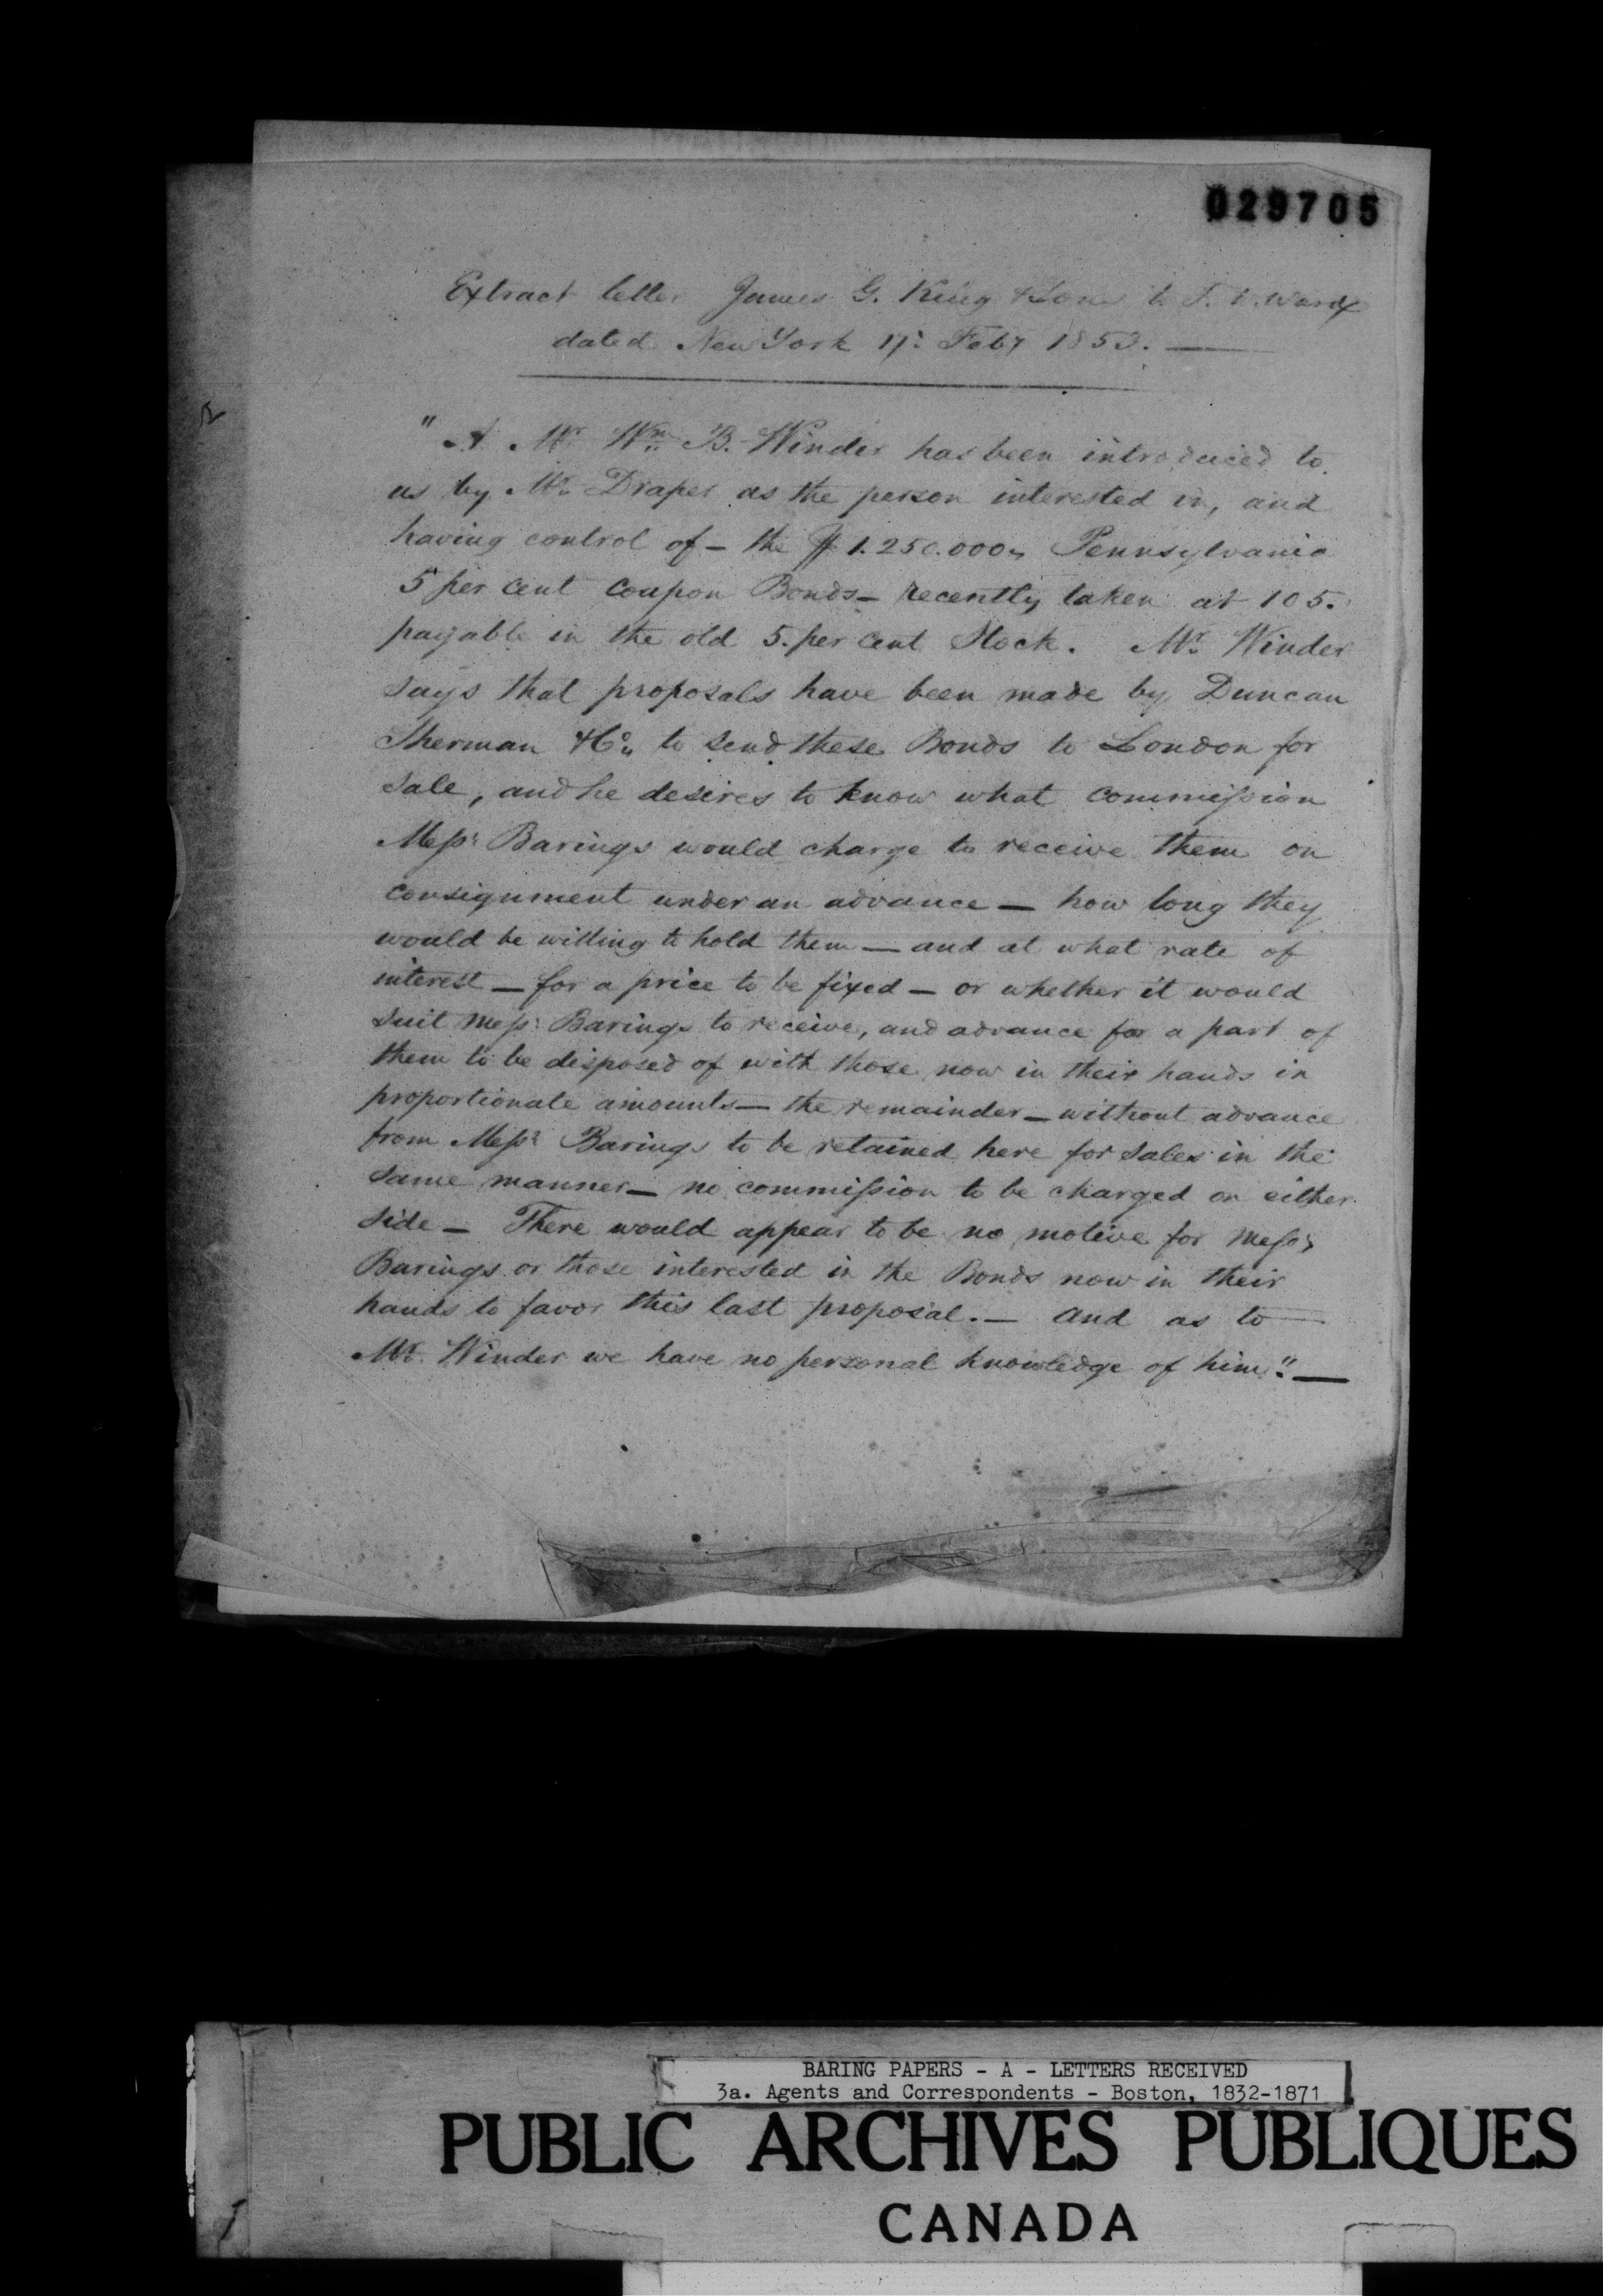 029705
Extract letter James G. King & Sons to T. W. Ward
dated New York 17: Feby 1853. —
"A Mr Wm B. Winder has been introduced to
us by Mr Draper as the person interested in, and
having control of — the $ 1.250.000,, Pennsylvania
5 per cent Coupon Bonds — recently taken at 105.
payable in the old 5. per cent Stock. Mr Winder
says that proposals have been made by Duncan
Sherman & Co,, to send these Bonds to London for
sale, and he desires to know what commission
Messrs Barings would charge to receive them on
consignment under an advance — how long they
would be willing to hold them — and at what rate of
interest — for a price to be fixed — or whether it would
suit Messrs Barings to receive, and advance for a part of
them to be disposed of with those now in their hands in
proportionate amounts — the remainder — without advance
from Messrs Barings to be retained here for sales in the
same manner — no commission to be charged on either
side — There would appear to be no motive for Messrs
Barings or those interested in the Bonds now in their
hands to favor this last proposal. — And as to —
Mr. Winder we have no personal knowledge of him." —
BARING PAPERS - A - LETTERS RECEIVED
3a. Agents and Correspondents - Boston, 1832-1871
PUBLIC ARCHIVES PUBLIQUES
CANADA